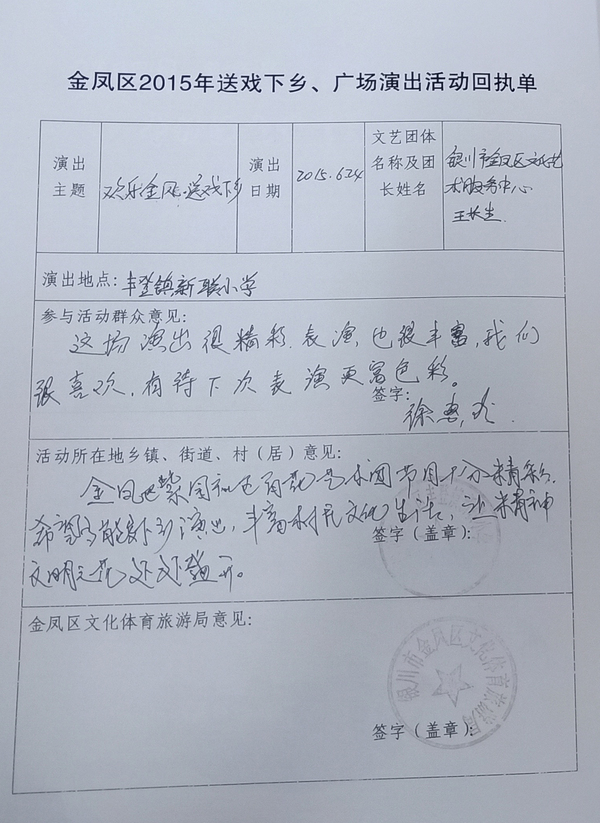 金凤区2015年送戏下乡、广场演出活动回执单
演出主题
欢乐金凤.送戏下乡
演出日期
2015.6.24
文艺团体名称及团长姓名
银川市金凤区文化艺术服务中心
王长生
演出地点：丰登镇新联小学
参与活动群众意见：
这场演出很精彩.表演也很丰富,我们
很喜欢,有待下次表演更富色彩。
签字：
徐惠
活动所在地乡镇、街道、村（居）意见：
金凤 艺术团节目十分精彩.
希望 能 下乡演出,丰富村民文化生活,让精神
文明之花处处盛开。
签字（盖章）：
金凤区文化体育旅游局意见：
银川市金凤区文化体育旅游局
签字（盖章）：